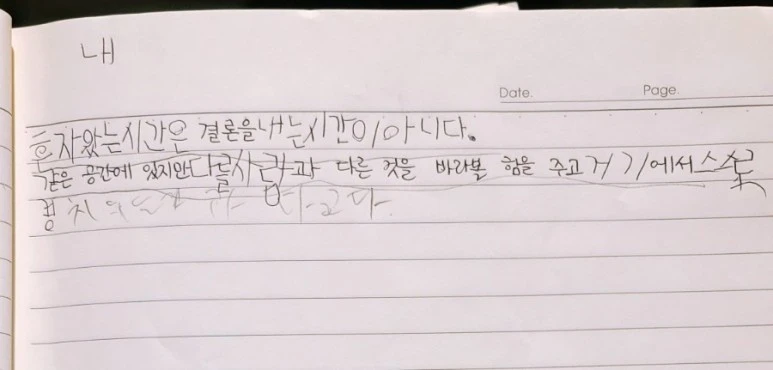 내
Date. Page.
혼자있는시간은 결론을내는시간이아니다.
같은 공간에 있지만다를사람과 다른 것을 바라볼 힘을 주고거기에서스스로